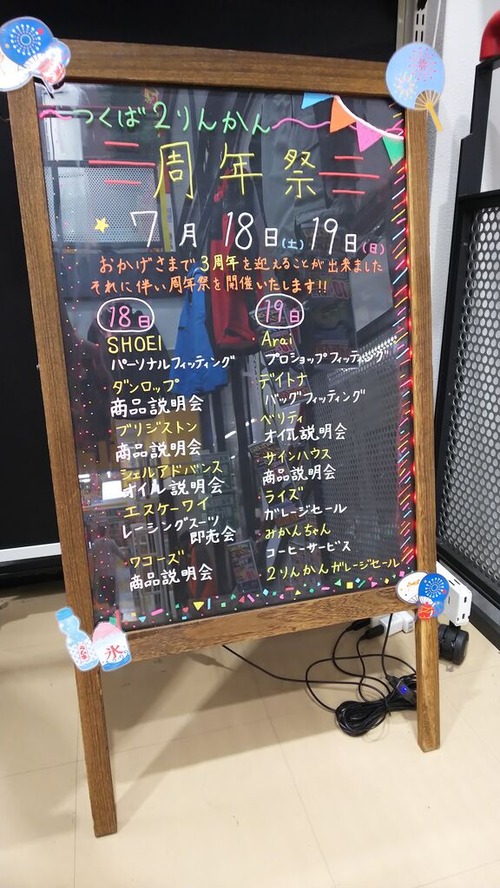 〜つくば2りんかん〜
二周年祭二
7月 18日(土) 19日(日)
おかげさまで3周年を迎えることが出来ました
それに伴い周年祭を開催いたします!!
18日
SHOEI
パーソナルフィッティング
ダンロップ
商品説明会
ブリジストン
商品説明会
シェルアドバンス
オイル説明会
エスケーワイ
レーシングスーツ
即売会
ワコーズ
商品説明会
19日
Arai
プロショップフィッティング
デイトナ
バッグフィッティング
ベリティ
オイル説明会
サインハウス
商品説明会
ライズ
ガレージセール
みかんちゃん
コーヒーサービス
2りんかんガレージセール
氷